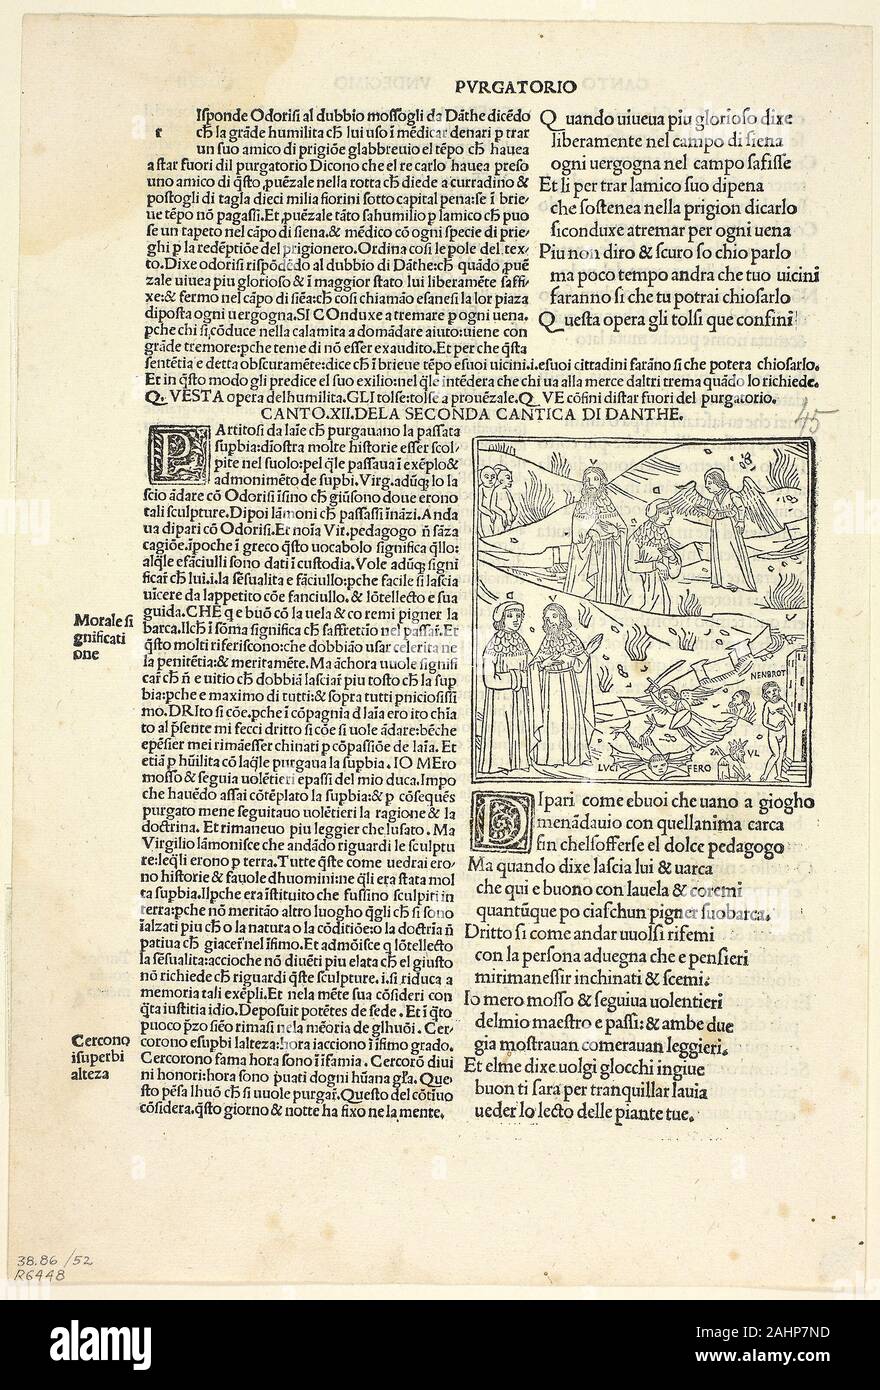 PVRGATORIO
ISponde Odorisi al dubbio mossogli da Dāthe dicēdo
r
ch la grāde humilita ch lui uso ī mēdicar denari p trar
un suo amico di prigiōe glabbreuio el tēpo ch hauea
a star fuori dil purgatorio Dicono che el re carlo hauea preso
uno amico di q̄sto ,puēzale nella rotta ch diede a curradino &
postogli di tagla dieci milia fiorini sotto capital pena:se ī brie/
ue tēpo nō pagassi.Et ,puēzale tāto sahumilio p lamico ch puo
se un tapeto nel cāpo di siena.& mēdico cō ogni specie di prie/
ghi p la redēptiōe del prigionero.Ordina cosi le pole del tex/
to.Dixe odorisi rispōdēdo al dubbio di Dāthe:ch quādo ,puē
zale uiuea piu glorioso & ī maggior stato lui liberamēte saffi/
xe:& fermo nel cāpo di siēa:ch cosi chiamāo esanesi la lor piaza
diposta ogni uergogna.SI COnduxe a tremare p ogni uena.
pche chi si,cōduce nella calamita a domādare aiuto:uiene con
grāde tremore:pche teme di nō esser exaudito.Et per che q̄sta
sentētia e detta obscuramēte:dice ch ī brieue tēpo esuoi uicini.i.esuoi cittadini farāno si che potera chiosarlo.
Et in q̄sto modo gli predice el suo exilio:nel q̄le intēdera che chi ua alla merce daltri trema quādo lo richiede.
Q. VESTA opera delhumilita.GLI tolse:tolse a prouēzale.Q VE cōfini distar fuori del purgatorio.
Q uando uiueua piu glorioso dixe
liberamente nel campo di siena
ogni uergogna nel campo safisse
Et li per trar lamico suo dipena
che sostenea nella prigion dicarlo
siconduxe atremar per ogni uena
Piu non diro & scuro so chio parlo
ma poco tempo andra che tuo uicini
faranno si che tu potrai chiosarlo
Q uesta opera gli tolsi que confini
CANTO.XII.DELA SECONDA CANTICA DI DANTHE.
45
PArtitosi da laīe ch purgauano la passata
supbia:diostra molte historie esser scol/
pite nel suolo:pel q̄le passaua ī exēplo&
admonimēto de supbi. Virg.adūq̄ lo la
scio ādare cō Odorisi īsino ch giūsono doue erono
tali sculpture. Dipoi lāmoni ch passassi īnāzi. Anda
ua dipari cō Odorisi. Et noīa Vir.pedagogo ñ sāza
cagiōe.īpoche ī greco q̄sto uocabolo significa q̄llo:
alq̄le efāciulli sono dati ī custodia. Vole adūq̄ signi
ficar ch lui.i.la sēsualita e fāciullo:pche facile si lascia
uīcere da lappetito cōe fanciullo. & lōtellecto e sua
guida.CHE q e buō cō la uela & co remi pigner la
barca.Ilch ī sōma significa ch saffrettīo nel passar. Et
q̄sto molti riferiscono:che dobbiāo usar celerita ne
la penitētia:& meritamēte. Ma āchora uuole signifi
car ch ñ e uitio ch dobbiā lasciar piu tosto ch la sup
bia:pche e maximo di tutti:& sopra tutti pniciosissi
mo. DRIto si cōe.pche ī cōpagnia d laīa ero ito chia
to al p̄sente mi fecci dritto si cōe si uole ādare:bēche
epēsier mei rimaesser chinati p cōpassiōe de laīa. Et
etiā p hūilita cō laq̄le purgaua la supbia. IO MEro
mosso & seguia uolētieri epassi del mio duca.Impo
che hauēdo assai cōtēplato la supbia:& p cōseq̄uēs
purgato mene seguitauo uolētieri la ragione & la
doctrina. Et rimaneuo piu leggier che lusato. Ma
Virgilio lāmonisce che andādo riguardi le sculptu
re:leq̄li erono p terra. Tutte q̄ste come uedrai ero/
no historie & fauole dhuomini:ne q̄li era stata mol
ta supbia.Ilpche era īstituito che fussino sculpiti in
terra:pche nō meritāo altro luogho q̄gli ch si sono
īalzati piu ch o la natura o la cōditiōe:o la doctrīa ñ
patiua ch giacer nel īfimo. Et admōisce q lōtellecto
la sēsualita:accioche nō diuēti piu elata ch el giusto
nō richiede ch riguardi q̄ste sculpture. i.si riduca a
memoria tali exēpli. Et nela mēte sua cōsideri con
q̄ta iustitia idio. Deposuit potētes de sede . Et ī q̄to
puoco p̄zo siēo rimasi nela mēoria de glhuōi. Cer/
corono esupbi lalteza:hora iacciono ī īfimo grado.
Cercorono fama hora sono ī īfamia. Cercorō diui
ni honori:hora sono p̄uati dogni hūana gr̄a. Que/
sto pēsa lhuō ch si uuole purgar. Questo del cōtīuo
cōsidera.q̄sto giorno & notte ha fixo ne la mente.
Morale si
gnificati
one
Cercono
isuperbi
alteza
V
V
NENBROT
LVCI FERO
DIpari come ebuoi che uano a giogho
menādauio con quellanima carca
fin chelsofferse el dolce pedagogo
Ma quando dixe lascia lui & uarca
che qui e buono con lauela & coremi
quantūque po ciaschun pigner suobarca.
Dritto si come andar uuolsi rifemi
con la persona aduegna che e pensieri
mirimanessir inchinati & scemi.
Io mero mosso & seguiua uolentieri
delmio maestro e passi:& ambe due
gia mostrauan comerauan leggieri.
Et elme dixe uolgi glocchi ingiue
buon ti sara per tranquillar lauia
ueder lo lecto delle piante tue.
38.86/52
R6448
alamy
Image ID: 2AHP7ND
www.alamy.com